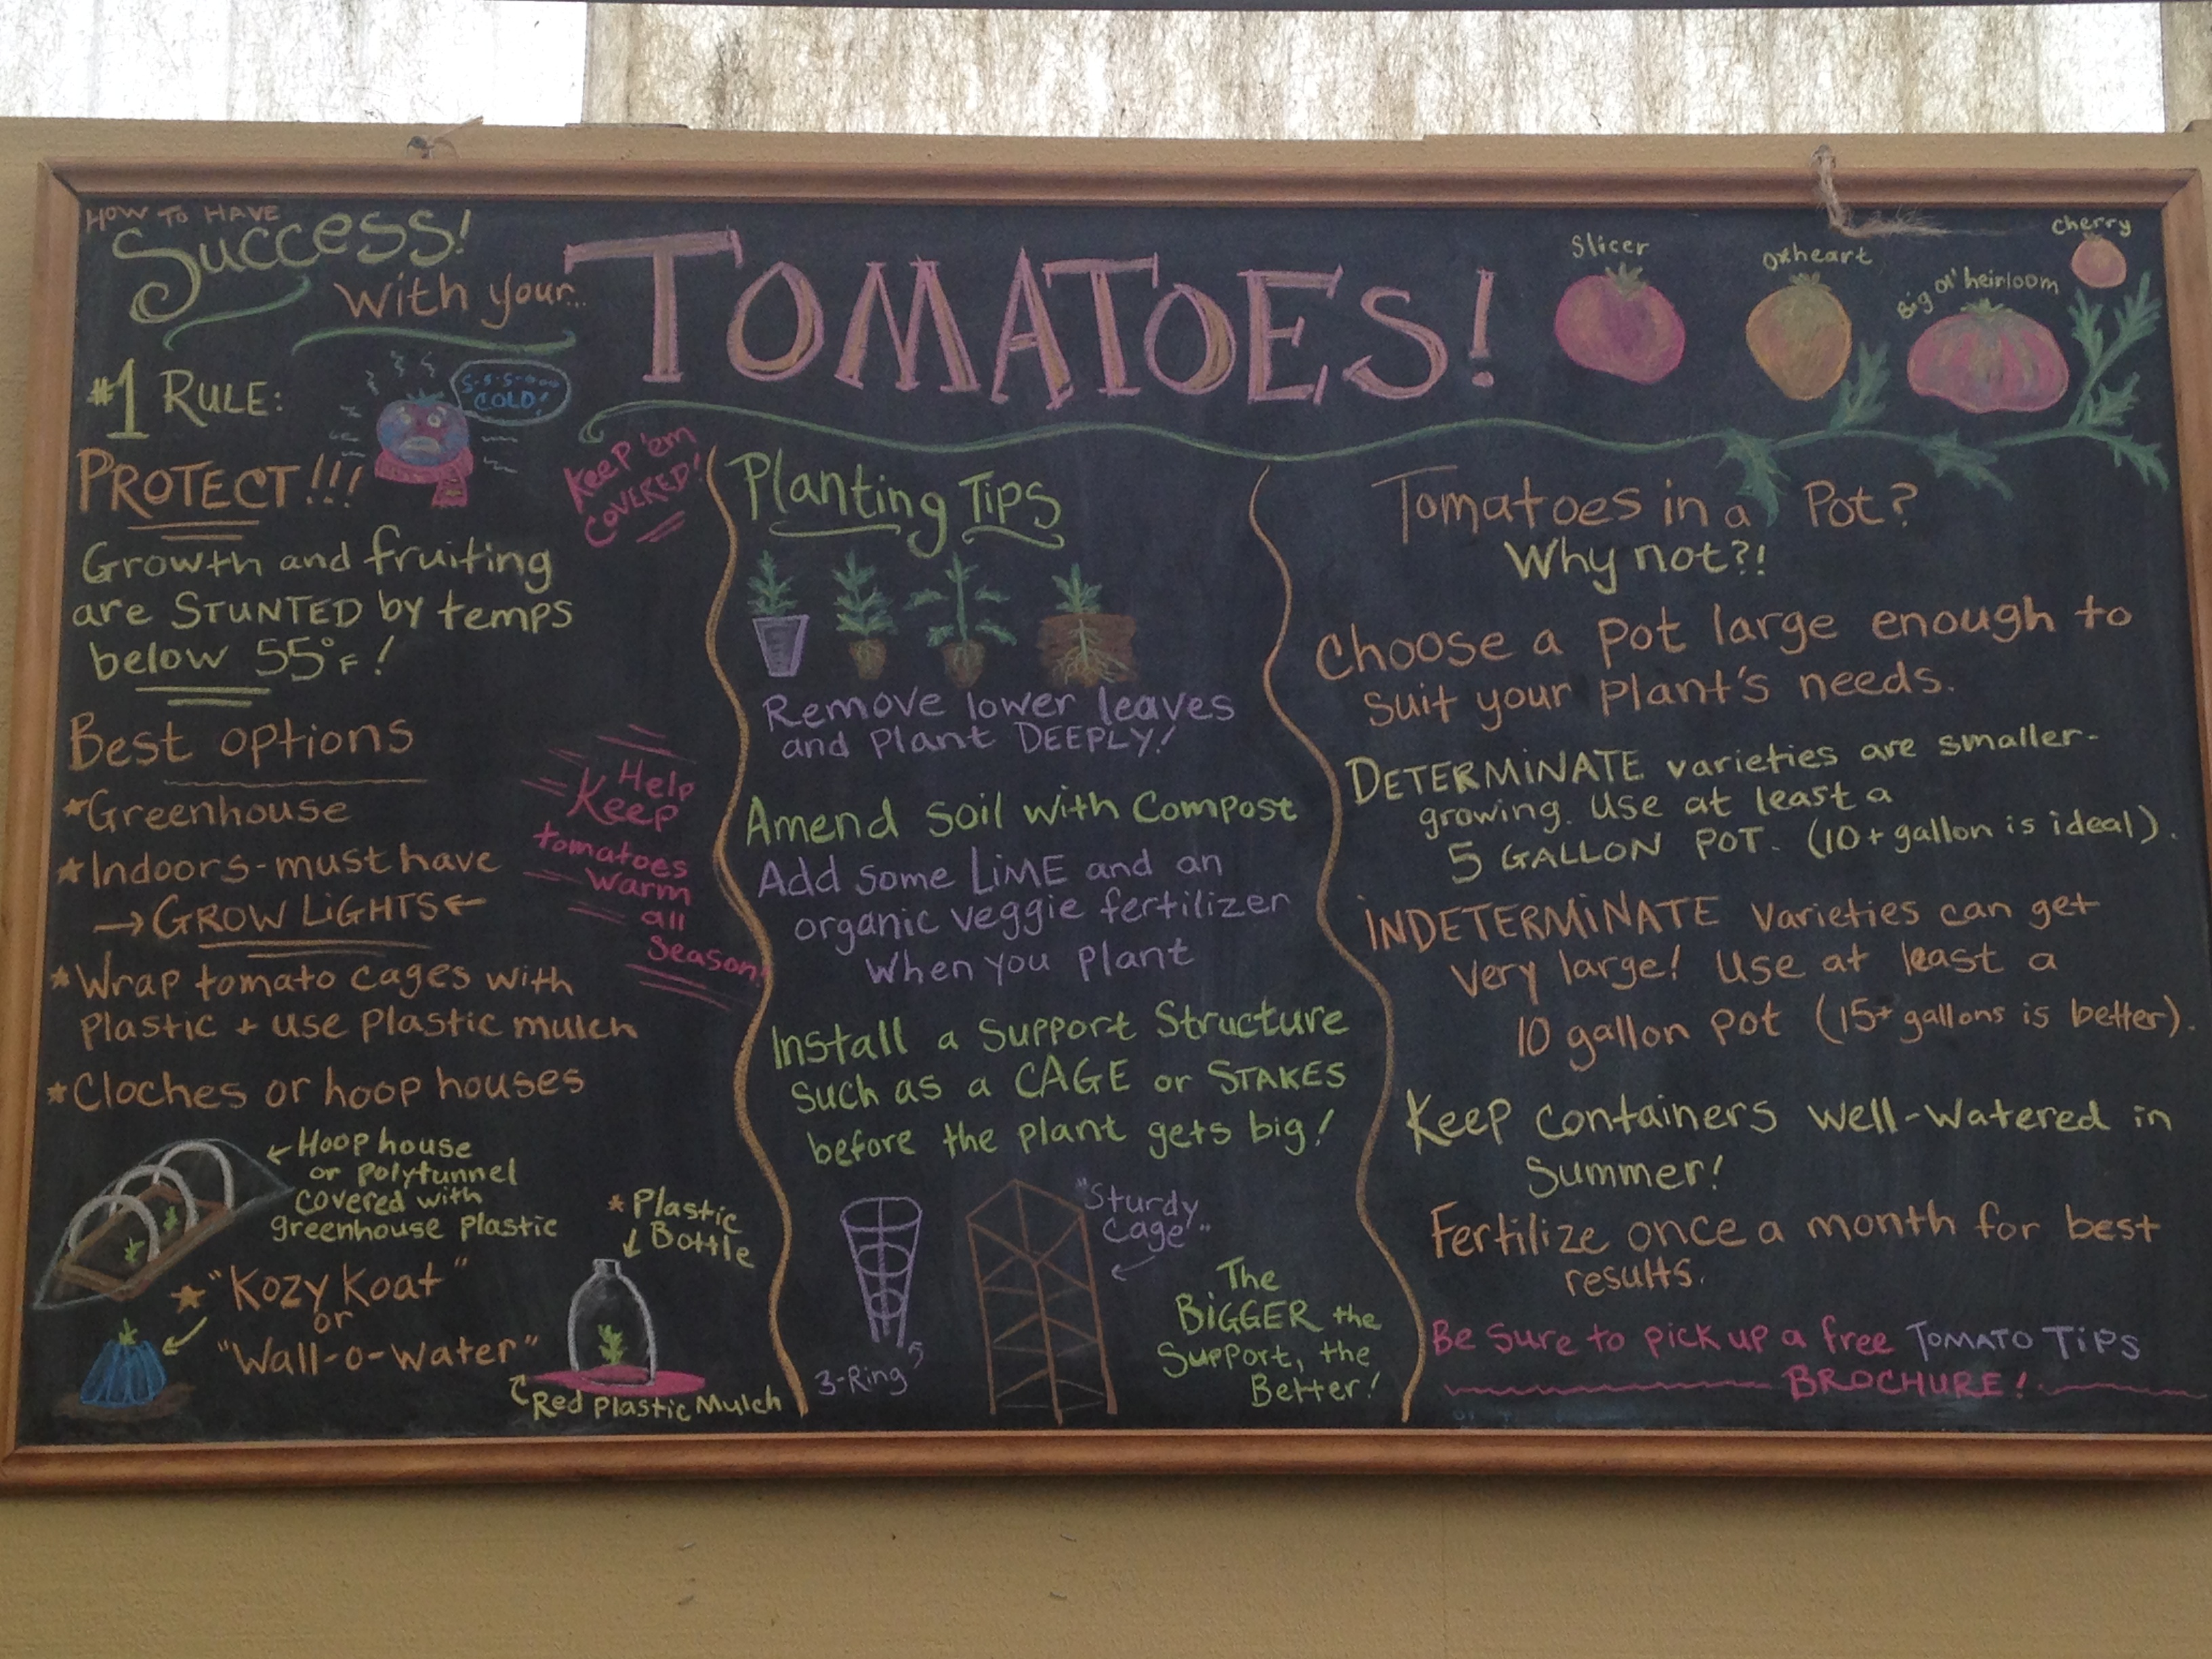 HOW TO HAVE
Success!
with your...
TOMATOES!
Slicer
Oxheart
Big ol' heirloom
Cherry
#1 RULE:
S-S-S-ooo
COLD!
PROTECT!!!
Keep 'em
COVERED!
Growth and fruiting
are STUNTED by temps
below 55°F!
Best options
*Greenhouse
*Indoors-must have
→GROW LIGHTS←
*Wrap tomato cages with
plastic + use plastic mulch
*Cloches or hoop houses
Help
Keep
tomatoes
warm
all
Season!
←Hoop house
or polytunnel
covered with
greenhouse plastic
* "Kozy Koat"
or
"Wall-o-Water"
* Plastic
Bottle
Red Plastic Mulch
Planting Tips
Remove lower leaves
and plant DEEPLY!
Amend soil with Compost
Add some LIME and an
organic veggie fertilizer
when you plant
Install a Support Structure
such as a CAGE or STAKES
before the plant gets big!
3-Ring
"Sturdy
Cage"
The
BIGGER the
Support, the
Better!
Tomatoes in a Pot?
Why not?!
Choose a pot large enough to
suit your plant's needs.
DETERMINATE varieties are smaller-
growing. Use at least a
5 GALLON POT. (10+ gallon is ideal).
INDETERMINATE varieties can get
very large! Use at least a
10 gallon pot (15+ gallons is better).
Keep containers well-watered in
Summer!
Fertilize once a month for best
results.
Be sure to pick up a free TOMATO TIPS
BROCHURE!